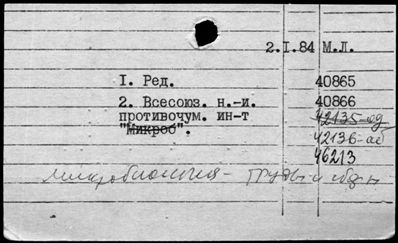 2.I.84 М.Л.
I. Ред. 40865
2. Всесоюз. н.-и. 40866
противочум. ин-т 42135-ад
"Микроб". 42136-ад
46213
микробиология - труды и сб-ки